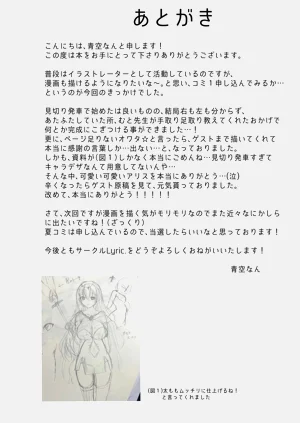 あとがき
こんにちは、青空なんと申します！
この度は本をお手にとって下さりありがとうございます。
普段はイラストレーターとして活動しているのですが、
漫画も描けるようになりたいな～。と思い、コミ1申し込んでみるか…
というのが今回のきっかけでした。
見切り発車で始めたは良いものの、結局右も左も分からず、
あたふたしていた所、むと先生が手取り足取り教えてくれたおかげで
何とか完成にこぎつける事ができました…！
更に、ページ足りないオワタ☆と言ったら、ゲストまで描いてくれて
本当に感謝の言葉しか…出ない…と、なっております。
しかも、資料が(図1)しかなく本当にごめんね…見切り発車すぎて
キャラデザなんて用意してないや…
そんな中、可愛い可愛いアリスを本当にありがとう…(泣)
辛くなったらゲスト原稿を見て、元気貰っておりました。
改めて、本当にありがとう！！！！！
さて、次回ですが漫画を描く気がモリモリなのでまた近々なにかしら
に出たいですね！(ざっくり)
夏コミは申し込んでいるので、当選したらいいなと思っております！
今後ともサークルLyric.をどうぞよろしくおねがいいたします！
青空なん
(図1)太ももムッチリに仕上げるね！
と言ってくれました